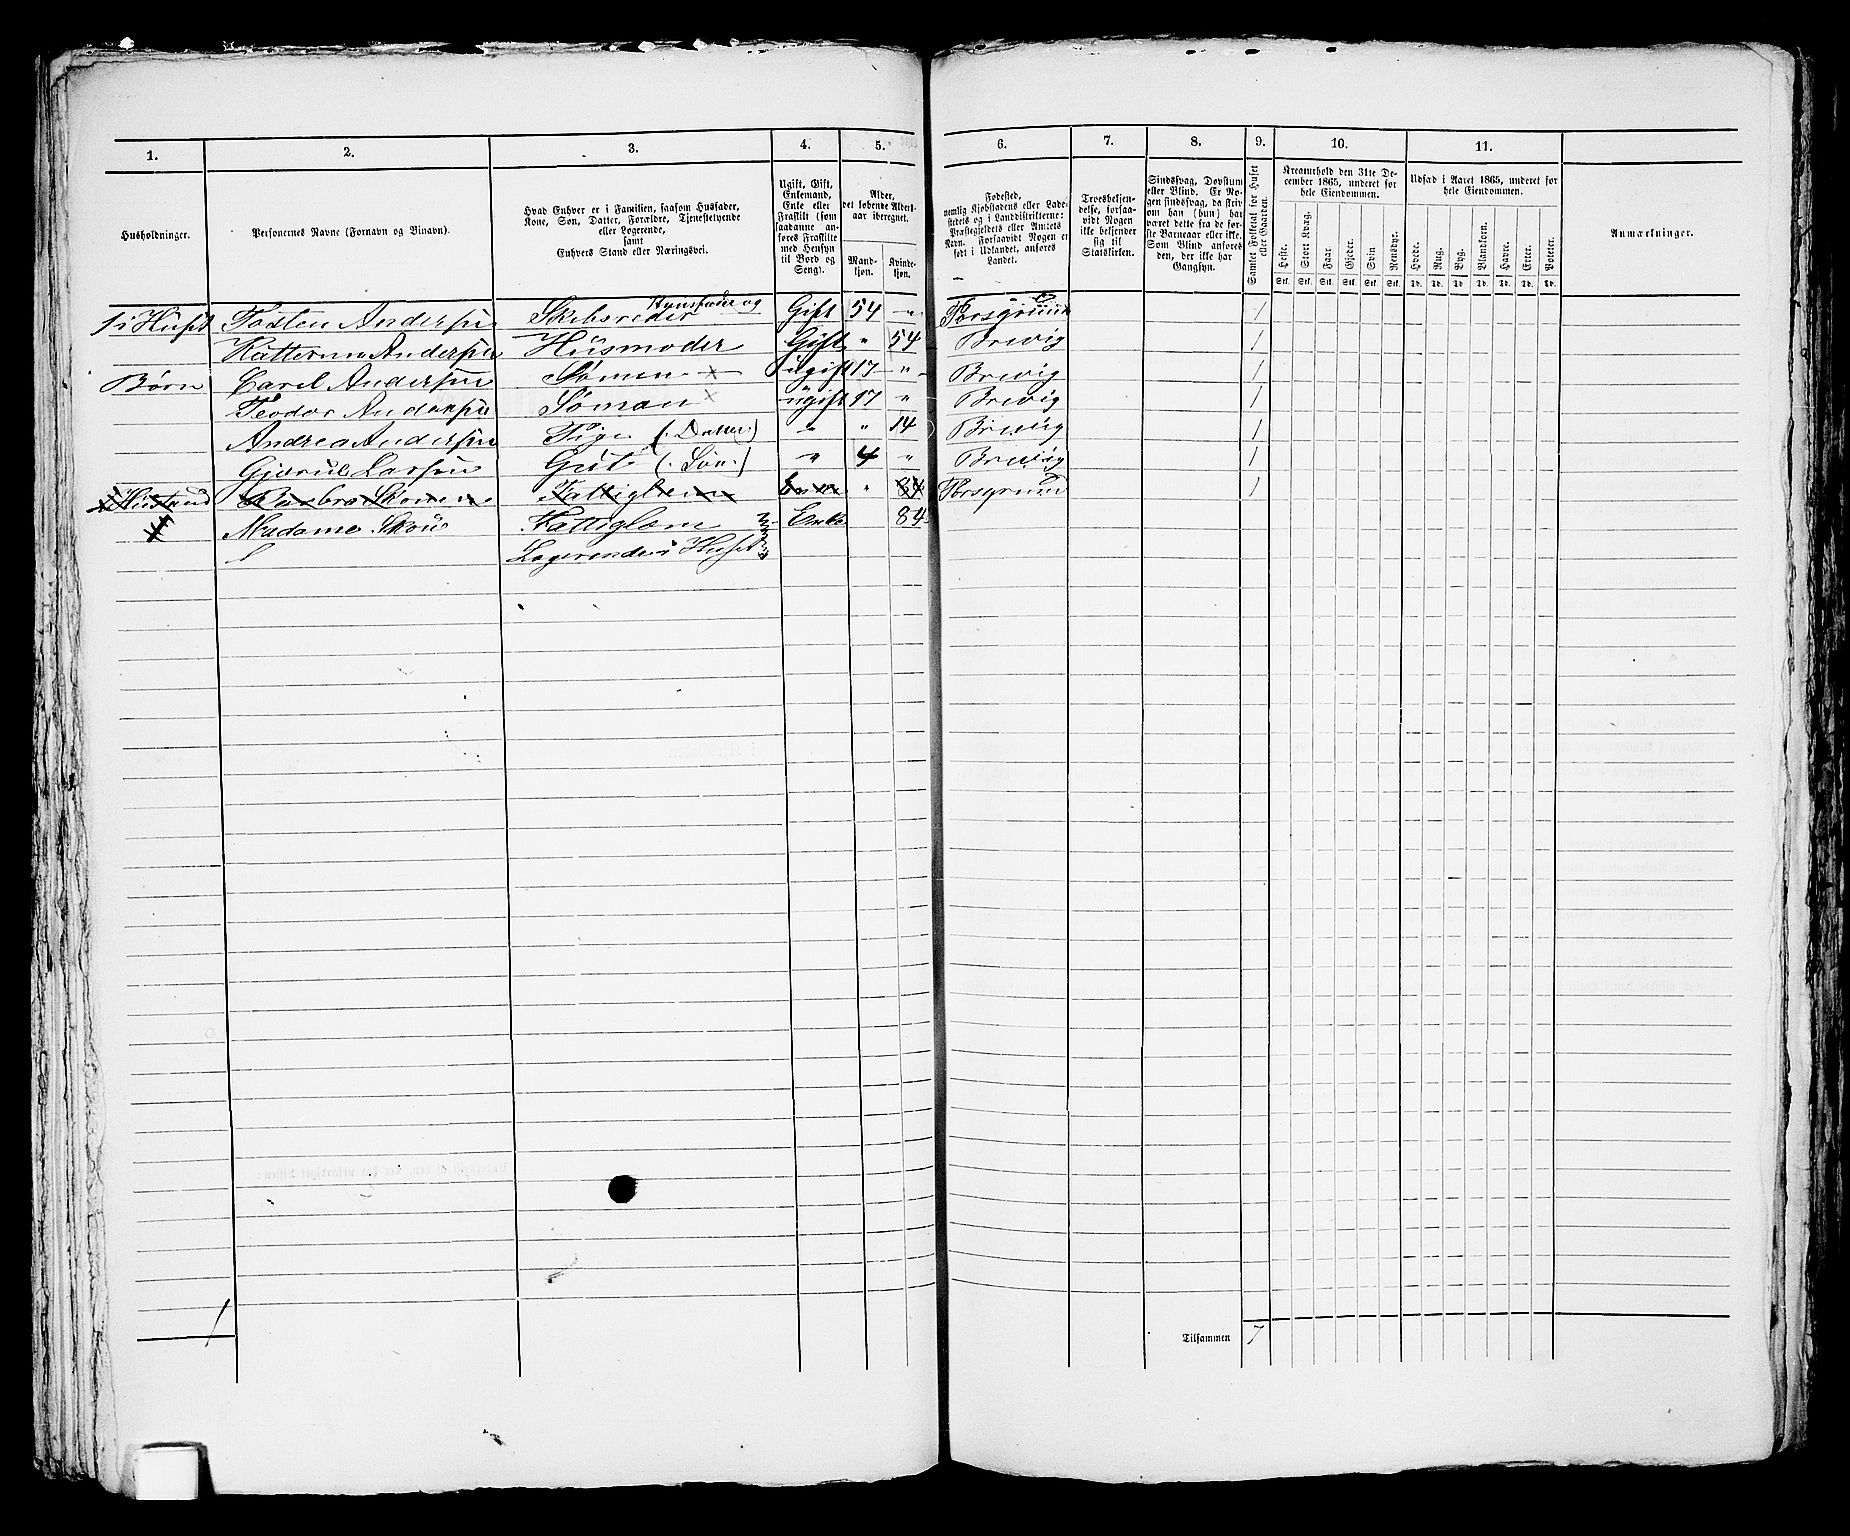 1. 2. 3. 4. 5. 6. 7. 8. 9. 10. 11.
Husholdninger.
Personernes Navne (Fornavn og Binavn).
Hvad Enhver er i Familien, saasom Husfader,
Kone, Søn, Datter, Forældre, Tjenestetyende
eller Logerende,
samt
Enhvers Stand eller Næringsvei.
Ugift, Gift,
Enkemand,
Enke eller
Fraskilt (som
saadanne an-
føres Fraskilte
med Hensyn
til Bord og
Seng).
Alder,
det løbende Alders-
aar iberegnet.
Mand-
kjøn.
Kvinde-
kjøn.
Fødested,
nemlig Kjøbstadens eller Lade-
stedets og i Landdistrikterne:
Præstegjeldets eller Amtets
Navn. Forsaavidt Nogen er
født i Udlandet, anføres
Landet.
Troesbekjen-
delse, forsaa-
vidt Nogen
ikke bekjender
sig til
Statskirken.
Sindssvag, Døvstum
eller Blind. Er No-
gen sindssvag, da skriv
om han (hun) har
været dette fra de før-
ste Barneaar eller ikke.
Som Blind anføres
den, der ikke har
Gangsyn.
Samlet Folketal for Huset
eller Gaarden.
Kreaturhold den 31te De-
cember 1865, underet for
hele Eiendommen.
Heste. Stort Kvæg. Faar. Gjeder. Svin. Rensdyr.
Stk. Stk. Stk. Stk. Stk. Stk.
Udsæd i Aaret 1865, underet for
hele Eiendommen.
Hvede. Rug. Byg. Blandkorn. Havre. Erter. Poteter.
Td. Td. Td. Td. Td. Td. Td.
Anmærkninger.
1 i Huset Tosten Andersen Skibsreder Huusfader og Gift 54 " Porsgrund 1
Katterina Andersen Huusmoder Gift " 54 Brevig 1
Børn Carel Andersen Sømen x ugift 17 " Brevig 1
Teodor Andersen Søman x ugift 17 " Brevig 1
Andrea Andersen Pige (Datter) " " 14 Brevig 1
Larsen Gut (Søn) " 4 " Brevig 1
Fattiglem Enke " 84 Porsgrund 1
Madame Skou Fattiglem Enke 84
Logerende i Huset
1
Tilsammen 7